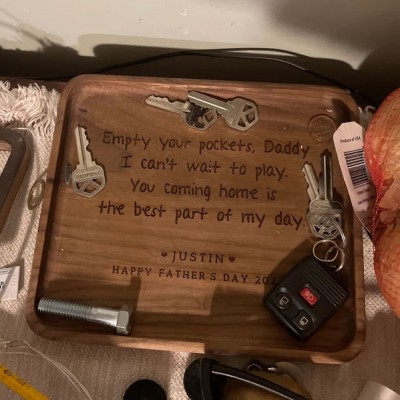 Empty your pockets, Daddy
I can't wait to play.
You coming home is
the best part of my day.
♥ JUSTIN ♥
HAPPY FATHER'S DAY